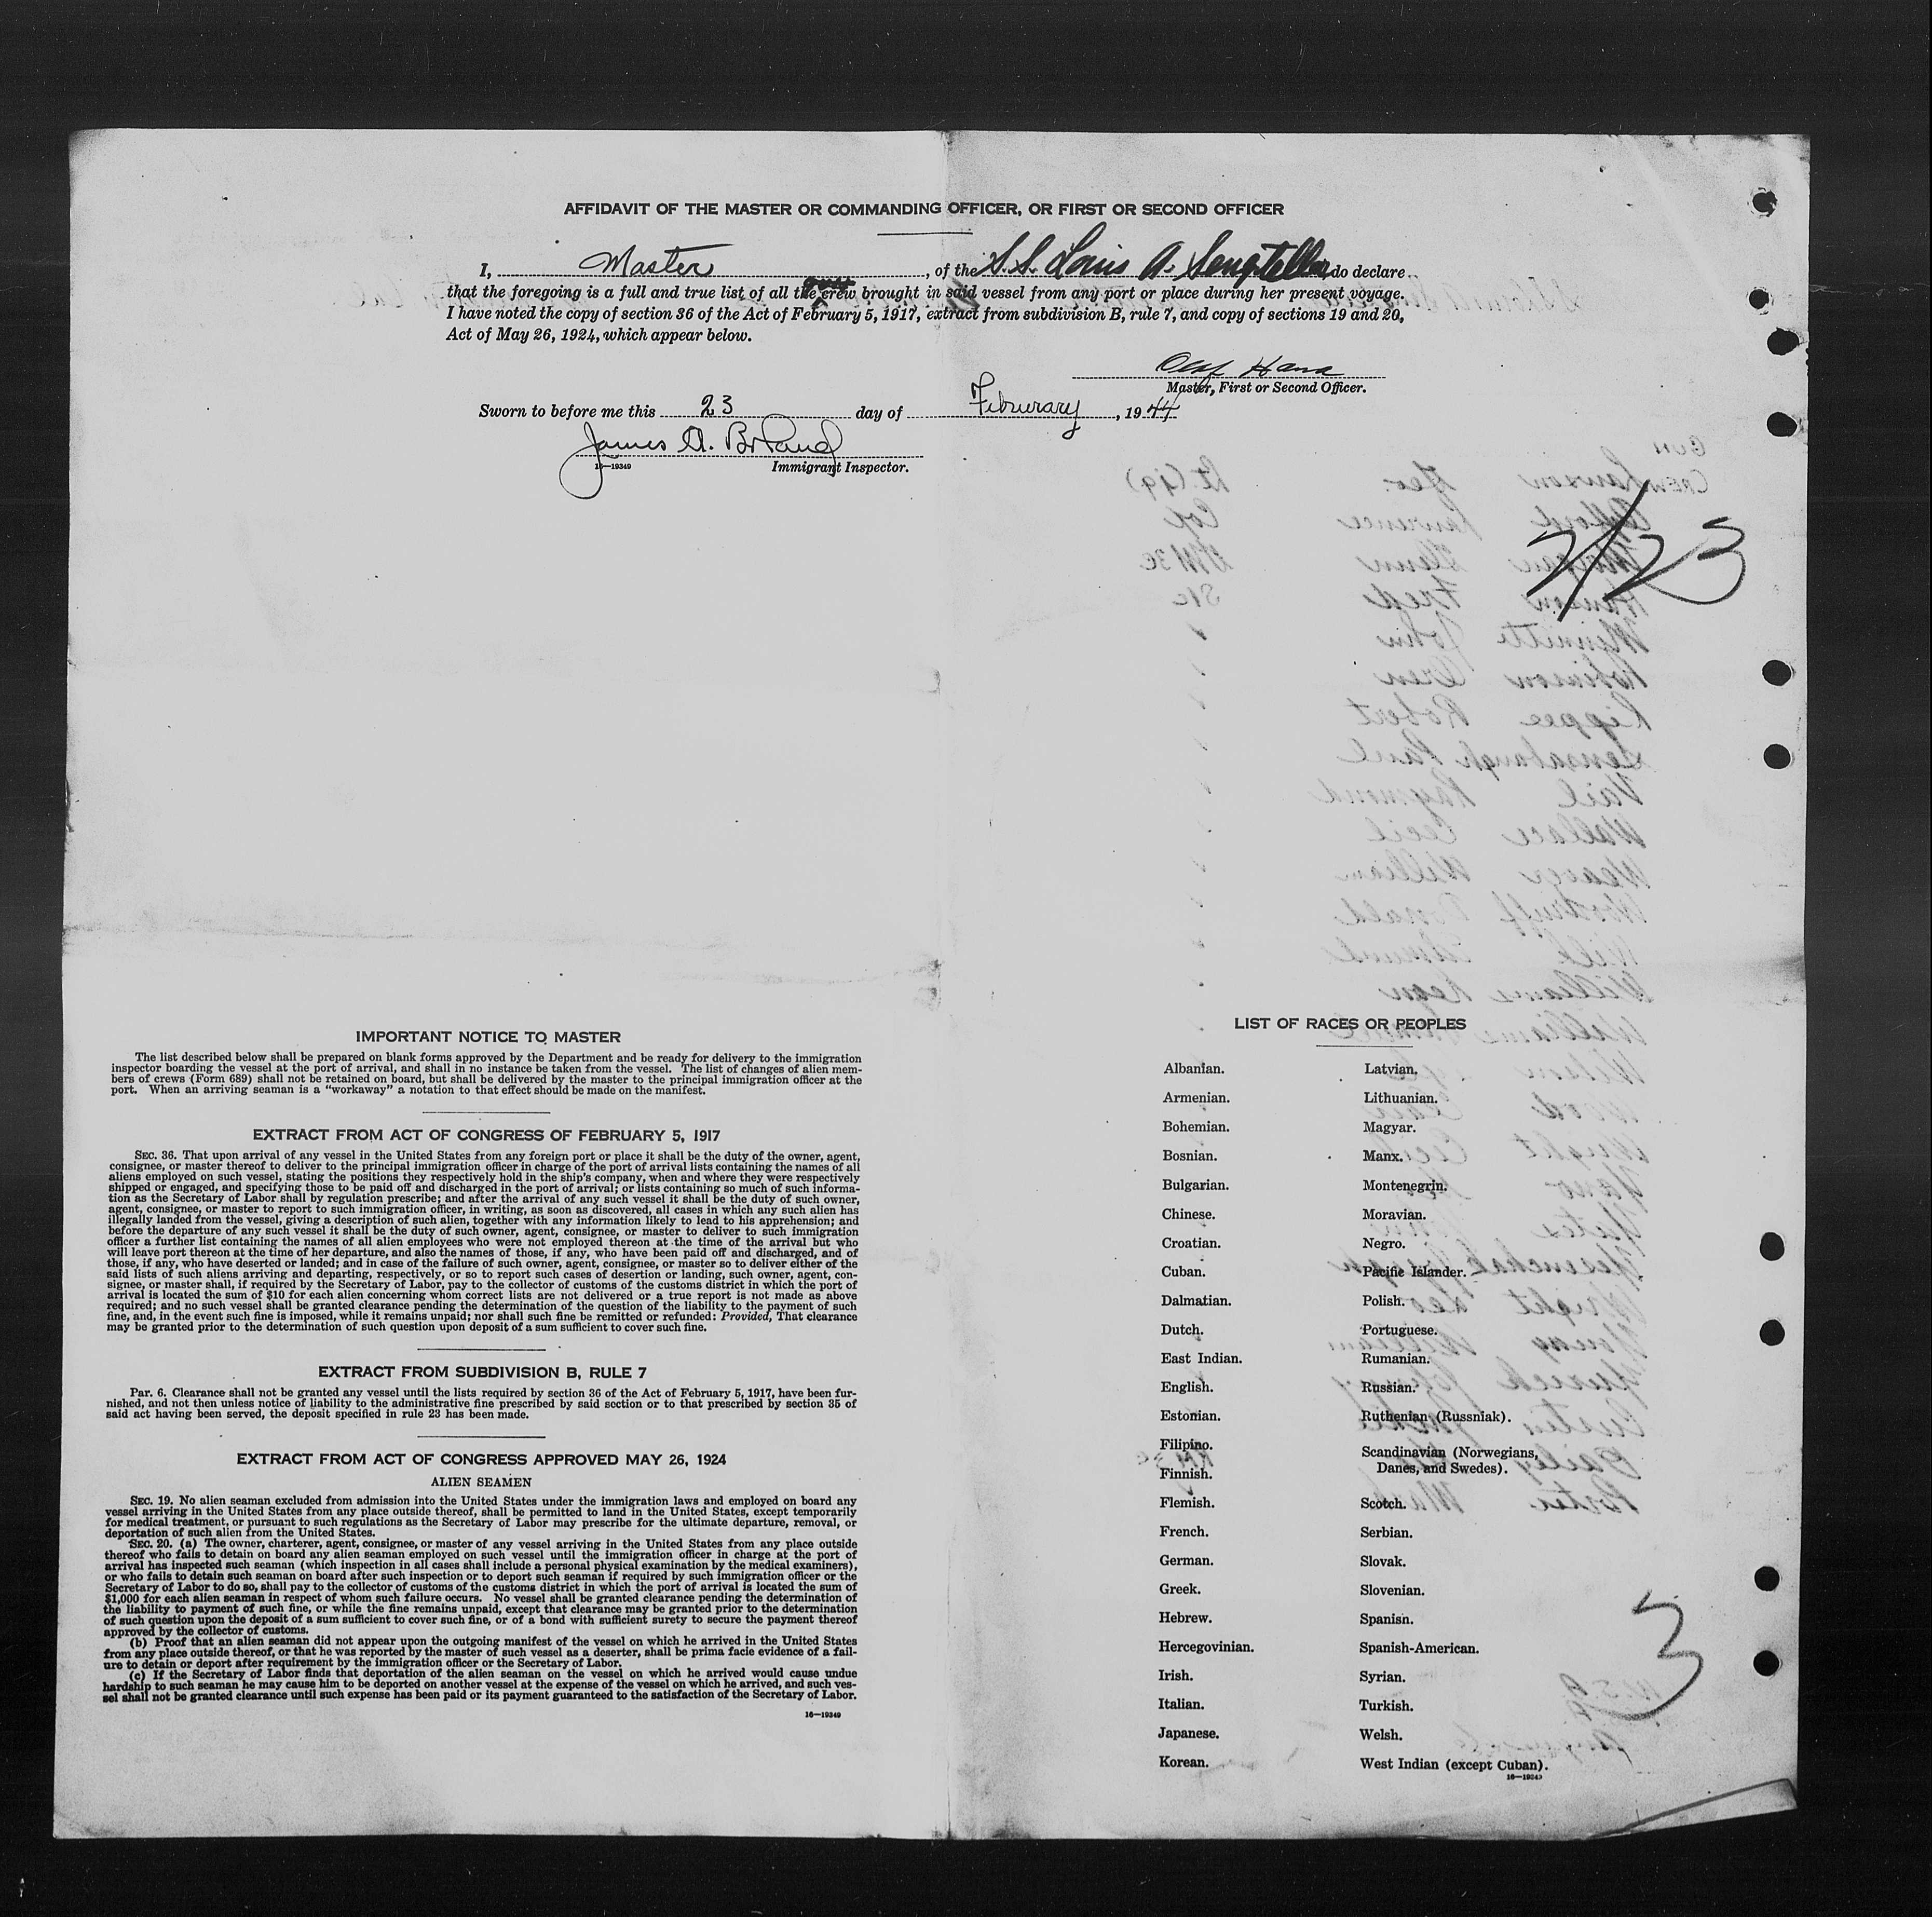 AFFIDAVIT OF THE MASTER OR COMMANDING OFFICER, OR FIRST OR SECOND OFFICER
I, Master, of the S.S. Louis A. Sengteller do declare
gun
that the foregoing is a full and true list of all the crew brought in said vessel from any port or place during her present voyage.
I have noted the copy of section 36 of the Act of February 5, 1917, extract from subdivision B, rule 7, and copy of sections 19 and 20,
Act of May 26, 1924, which appear below.
Master, First or Second Officer.
Sworn to before me this 23 day of Feburary, 1944
James A.
16—19349 Immigrant Inspector.
2/23
IMPORTANT NOTICE TO MASTER
The list described below shall be prepared on blank forms approved by the Department and be ready for delivery to the immigration
inspector boarding the vessel at the port of arrival, and shall in no instance be taken from the vessel. The list of changes of alien mem-
bers of crews (Form 689) shall not be retained on board, but shall be delivered by the master to the principal immigration officer at the
port. When an arriving seaman is a “workaway” a notation to that effect should be made on the manifest.
EXTRACT FROM ACT OF CONGRESS OF FEBRUARY 5, 1917
SEC. 36. That upon arrival of any vessel in the United States from any foreign port or place it shall be the duty of the owner, agent,
consignee, or master thereof to deliver to the principal immigration officer in charge of the port of arrival lists containing the names of all
aliens employed on such vessel, stating the positions they respectively hold in the ship's company, when and where they were respectively
shipped or engaged, and specifying those to be paid off and discharged in the port of arrival; or lists containing so much of such informa-
tion as the Secretary of Labor shall by regulation prescribe; and after the arrival of any such vessel it shall be the duty of such owner,
agent, consignee, or master to report to such immigration officer, in writing, as soon as discovered, all cases in which any such alien has
illegally landed from the vessel, giving a description of such alien, together with any information likely to lead to his apprehension; and
before the departure of any such vessel it shall be the duty of such owner, agent, consignee, or master to deliver to such immigration
officer a further list containing the names of all alien employees who were not employed thereon at the time of the arrival but who
will leave port thereon at the time of her departure, and also the names of those, if any, who have been paid off and discharged, and of
those, if any, who have deserted or landed; and in case of the failure of such owner, agent, consignee, or master so to deliver either of the
said lists of such aliens arriving and departing, respectively, or so to report such cases of desertion or landing, such owner, agent, con-
signee, or master shall, if required by the Secretary of Labor, pay to the collector of customs of the customs district in which the port of
arrival is located the sum of $10 for each alien concerning whom correct lists are not delivered or a true report is not made as above
required; and no such vessel shall be granted clearance pending the determination of the question of the liability to the payment of such
fine, and, in the event such fine is imposed, while it remains unpaid; nor shall such fine be remitted or refunded: Provided, That clearance
may be granted prior to the determination of such question upon deposit of a sum sufficient to cover such fine.
EXTRACT FROM SUBDIVISION B, RULE 7
Par. 6. Clearance shall not be granted any vessel until the lists required by section 36 of the Act of February 5, 1917, have been fur-
nished, and not then unless notice of liability to the administrative fine prescribed by said section or to that prescribed by section 35 of
said act having been served, the deposit specified in rule 23 has been made.
EXTRACT FROM ACT OF CONGRESS APPROVED MAY 26, 1924
ALIEN SEAMEN
SEC. 19. No alien seaman excluded from admission into the United States under the immigration laws and employed on board any
vessel arriving in the United States from any place outside thereof, shall be permitted to land in the United States, except temporarily
for medical treatment, or pursuant to such regulations as the Secretary of Labor may prescribe for the ultimate departure, removal, or
deportation of such alien from the United States.
SEC. 20. (a) The owner, charterer, agent, consignee, or master of any vessel arriving in the United States from any place outside
thereof who fails to detain on board any alien seaman employed on such vessel until the immigration officer in charge at the port of
arrival has inspected such seaman (which inspection in all cases shall include a personal physical examination by the medical examiners),
or who fails to detain such seaman on board after such inspection or to deport such seaman if required by such immigration officer or the
Secretary of Labor to do so, shall pay to the collector of customs of the customs district in which the port of arrival is located the sum of
$1,000 for each alien seaman in respect of whom such failure occurs. No vessel shall be granted clearance pending the determination of
the liability to payment of such fine, or while the fine remains unpaid, except that clearance may be granted prior to the determination
of such question upon the deposit of a sum sufficient to cover such fine, or of a bond with sufficient surety to secure the payment thereof
approved by the collector of customs.
(b) Proof that an alien seaman did not appear upon the outgoing manifest of the vessel on which he arrived in the United States
from any place outside thereof, or that he was reported by the master of such vessel as a deserter, shall be prima facie evidence of a fail-
ure to detain or deport after requirement by the immigration officer or the Secretary of Labor.
(c) If the Secretary of Labor finds that deportation of the alien seaman on the vessel on which he arrived would cause undue
hardship to such seaman he may cause him to be deported on another vessel at the expense of the vessel on which he arrived, and such ves-
sel shall not be granted clearance until such expense has been paid or its payment guaranteed to the satisfaction of the Secretary of Labor.
16—19349
LIST OF RACES OR PEOPLES
Albanian.
Armenian.
Bohemian.
Bosnian.
Bulgarian.
Chinese.
Croatian.
Cuban.
Dalmatian.
Dutch.
East Indian.
English.
Estonian.
Filipino.
Finnish.
Flemish.
French.
German.
Greek.
Hebrew.
Hercegovinian.
Irish.
Italian.
Japanese.
Korean.
Latvian.
Lithuanian.
Magyar.
Manx.
Montenegrin.
Moravian.
Negro.
Pacific Islander.
Polish.
Portuguese.
Rumanian.
Russian.
Ruthenian (Russniak).
Scandinavian (Norwegians,
Danes, and Swedes).
Scotch.
Serbian.
Slovak.
Slovenian.
Spanish.
Spanish-American.
Syrian.
Turkish.
Welsh.
West Indian (except Cuban).
16—19349
3